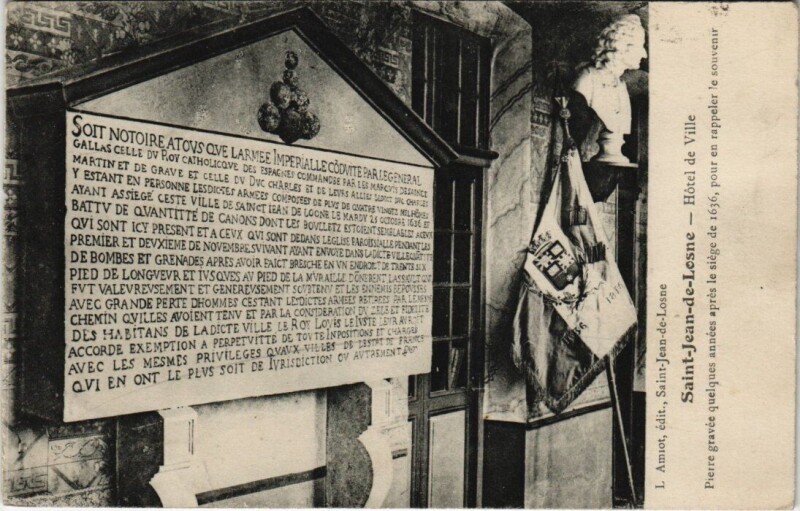 SOIT NOTOIRE A TOVS QVE LARMEE IMPERIALLE CÕDVITE PAR LE GENERAL
GALLAS CELLE DV ROY CATHOLICQVE DES ESPAGNES COMMANDEE PAR LES MARQVIS DE SAINCT
MARTIN ET DE GRAVE ET CELLE DV DVC CHARLES ET DE LEVRS ALLIEZ LEDICT DVC CHARLES
Y ESTANT EN PERSONNE LESDICTES ARMEES COMPOSEES DE PLVS DE QVATRE VINGTS MIL HÕMES
AYANT ASSIEGÉ CESTE VILLE DE SAINCT IEAN DE LOGNE LE MARDY 25 OCTOBRE 1636 ET
BATTV DE QVANTTITÉ DE CANONS DONT LES BOVLLETZ ESTOIENT SEMBLABLES A CEVX
QVI SONT ICY PRESENT ET A CEVX QVI SONT DEDANS LEGLISE PAROISSIALLE PENDANT LES
PREMIER ET DEVXIEME DE NOVEMBRE SVIVANT AYANT ENVOYÉ DANS LADICTE VILLE QVANTITÉ
DE BOMBES ET GRENADES APRES AVOIR FAICT BRESCHE EN VN ENDROIT DE TRENTE SIX
PIED DE LONGVEVR ET IVSQVES AV PIED DE LA MVRAILLE DÕNERENT LASSAVLT QVI
FVT VALEVREVSEMENT ET GENEREVSEMENT SOVTENV ET LES ENNEMIS REPOVSSEZ
AVEC GRANDE PERTE DHOMMES CESTANT LESDICTES ARMEES RETIREES PAR LE MESME
CHEMIN QVILLES AVOIENT TENV ET PAR LA CONSIDERATION DV ZELE ET FIDELITÉ
DES HABITANS DE LADICTE VILLE LE ROY LOVIS LE IVSTE LEVR AVROIT
ACCORDE EXEMPTION A PERPETVITTE DE TOVTE INPOSITIONS ET CHARGES
AVEC LES MESMES PRIVILEGES QVAVX VILLES DE LESTRE DE FRANCE
QVI EN ONT LE PLVS SOIT DE IVRISDICTION OV AVTREMENT
L. Amiot, édit., Saint-Jean-de-Losne
Saint-Jean-de-Losne — Hôtel de Ville
Pierre gravée quelques années après le siège de 1636, pour en rappeler le souvenir